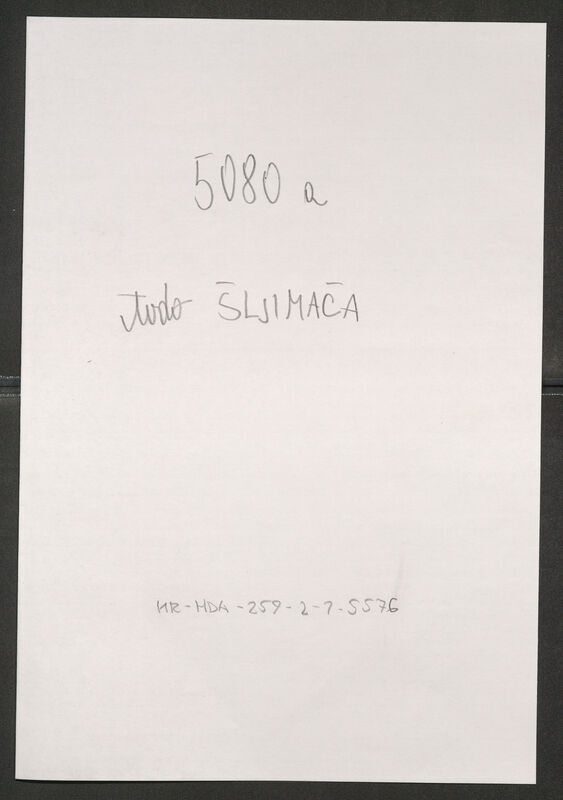 5080 a
Todo ŠLJIMAČA
HR-HDA-259-2-1-5576